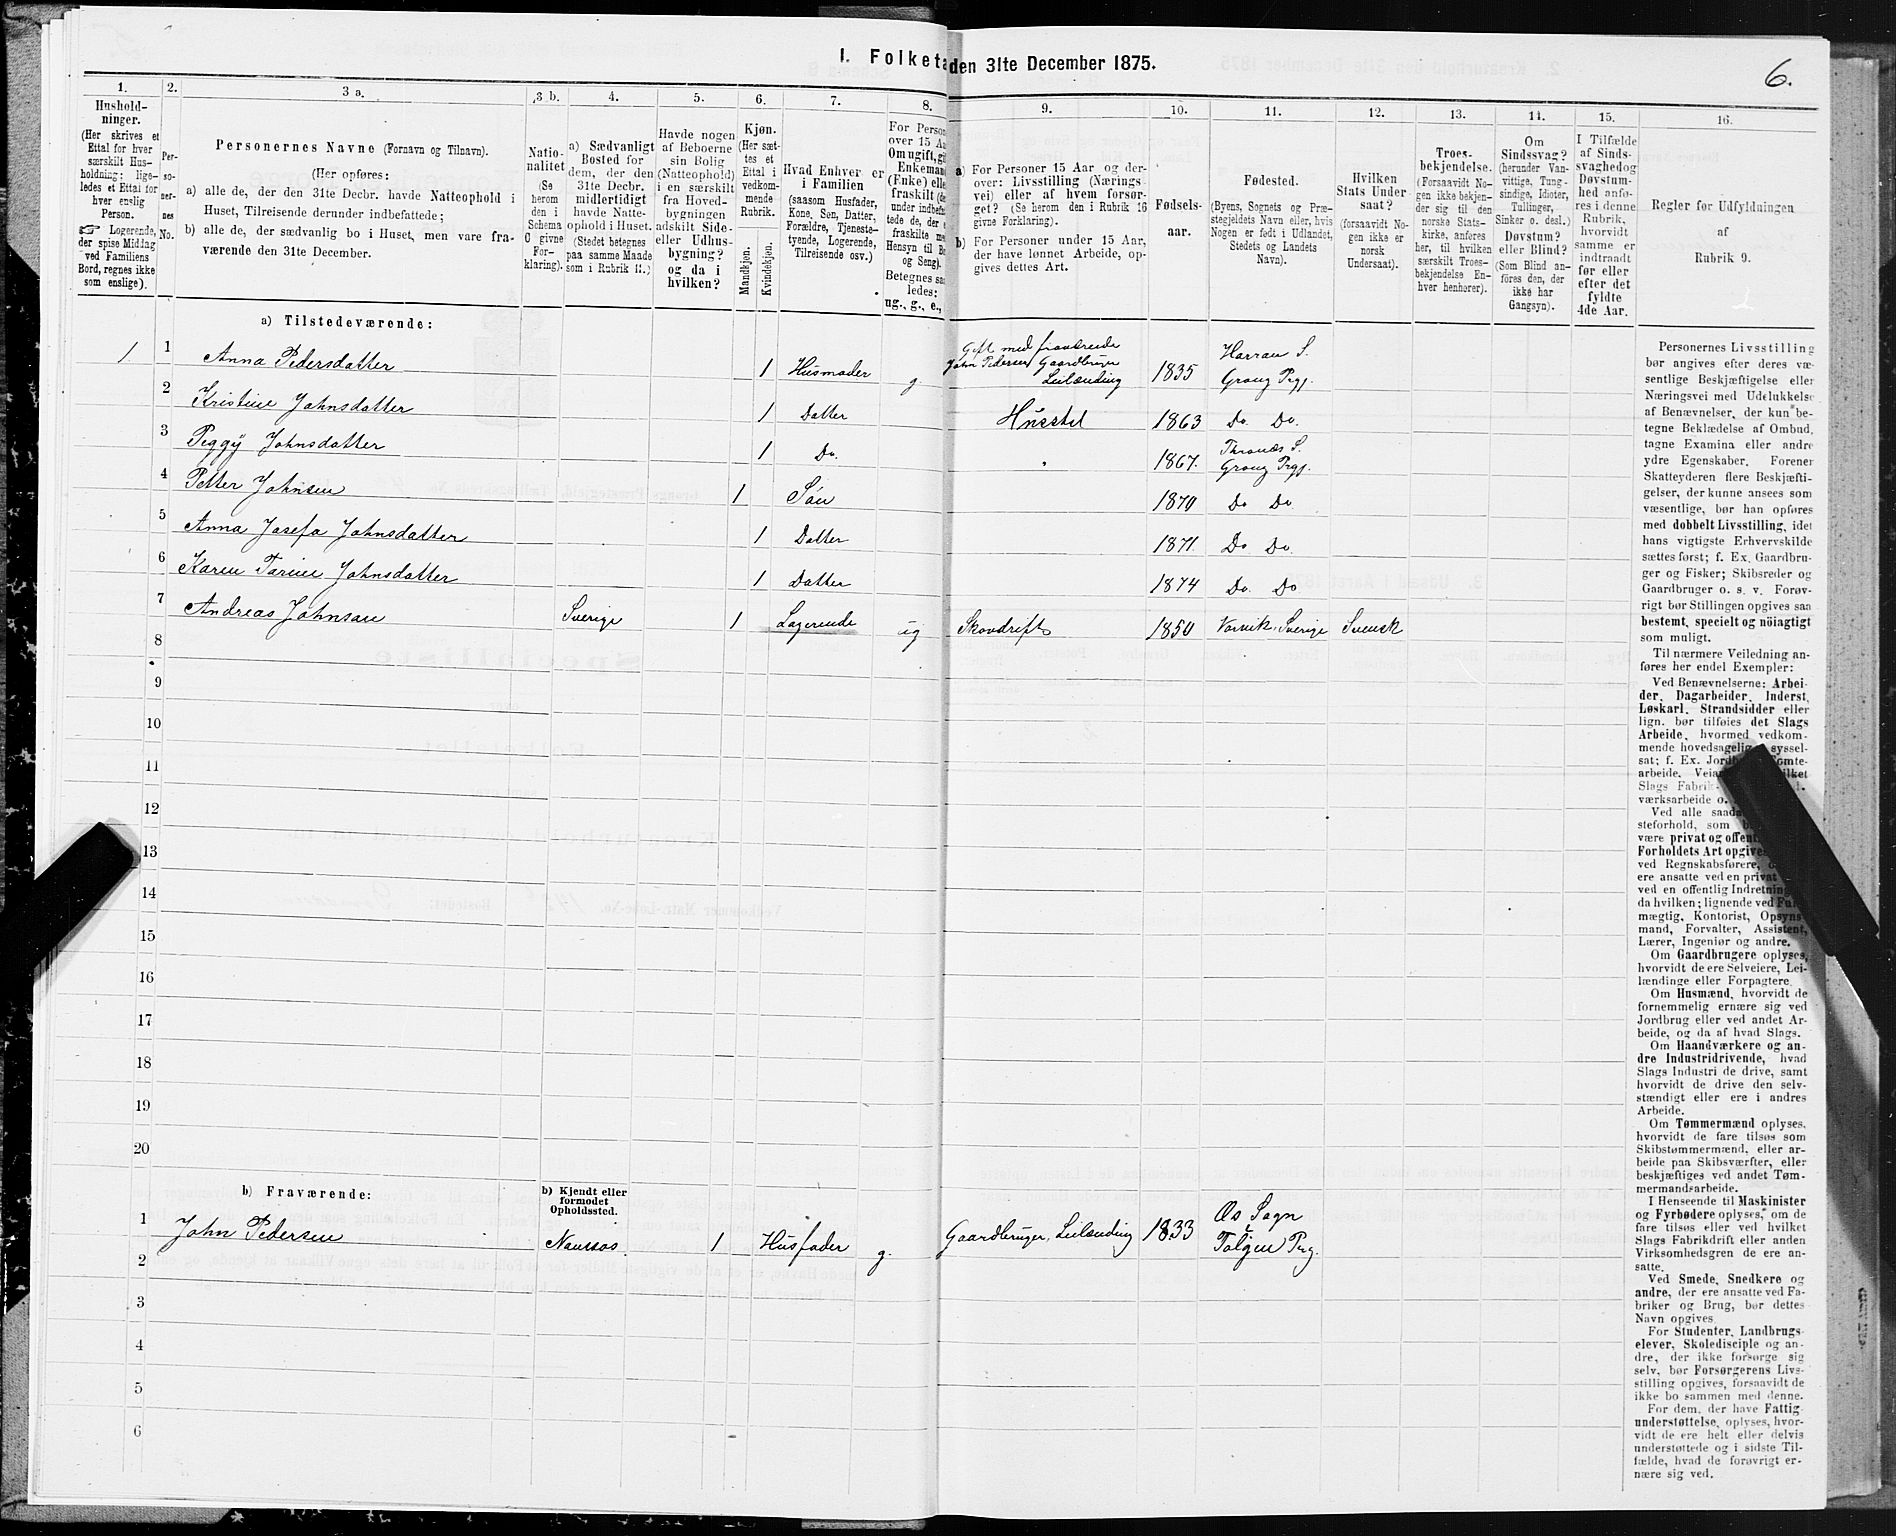 I. Folketa
den 31te December 1875.
6.
1.
Hushold-
ninger.
(Her skrives et
Ettal for hver
særskilt Hus-
holdning; lige-
ledes et Ettal for
hver enslig
Person.
☞ Logerende,
der spise Middag
ved Familiens
Bord, regnes ikke
som enslige).
2.
Per-
so-
ner-
nes
No.
3 a.
Personernes Navne (Fornavn og Tilnavn).
(Her opføres:
a) alle de, der den 31te Decbr. havde Natteophold i
Huset, Tilreisende derunder indbefattede;
b) alle de, der sædvanlig bo i Huset, men vare fra-
værende den 31te December.
3 b.
Natio-
nalitet
(Se
herom
den i
Schema
C givne
For-
klaring).
4.
a) Sædvanligt
Bosted for
dem, der den
31te Decbr.
midlertidigt
havde Natte-
ophold i Huset.
(Stedet betegnes
paa samme Maade
som i Rubrik 11.)
5.
Havde nogen
af Beboerne
sin Bolig
(Natteophold)
i en særskilt
fra Hoved-
bygningen
adskilt Side-
eller Udhus-
bygning?
og da i
hvilken?
6.
Kjøn.
(Her sæt-
tes et
Ettal i
vedkom-
mende
Rubrik.
Mandkjøn.
Kvindekjøn.
7.
Hvad Enhver er
i Familien
(saasom Husfader,
Kone, Søn, Datter,
Forældre, Tjeneste-
tyende, Logerende,
Tilreisende osv.)
8.
For Person
over 15 Aa
Om ugift, gif
Enkeman
(Enke) elle
fraskilt (de
under indbefa
tede de, der e
fraskilte me
Hensyn til Bo
og Seng).
Betegnes saa
ledes:
ug., g., e.,
9.
a) For Personer 15 Aar og der-
over: Livsstilling (Nærings-
vei) eller af hvem forsør-
get? (Se herom den i Rubrik 16
givne Forklaring).
b) For Personer under 15 Aar,
der have lønnet Arbeide, op-
gives dettes Art.
10.
Fødsels-
aar.
11.
Fødested.
(Byens, Sognets og Præ-
stegjeldets Navn eller, hvis
Nogen er født i Udlandet,
Stedets og Landets
Navn).
12.
Hvilken
Stats Under-
saat?
(forsaavidt No-
gen ikke er
norsk
Undersaat).
13.
Troes-
bekjendelse.
(Forsaavidt No-
gen ikke bekjen-
der sig til den
norske Stats-
kirke, anføres
her, til hvilken
særskilt Troes-
bekjendelse En-
hver henhører).
14.
Om
Sindssvag?
(herunder Van-
vittige, Tung-
sindige, Idioter,
Tullinger,
Sinker o. desl.)
Døvstum?
eller Blind?
(Som Blind an-
føres den, der
ikke har
Gangsyn).
15.
I Tilfælde
af Sinds-
svaghed og
Døvstum-
hed anfø-
res i denne
Rubrik,
hvorvidt
samme er
indtraadt
før eller
efter det
fyldte
4de Aar.
16.
Regler for Udfyldningen
af
Rubrik 9.
a) Tilstedeværende:
1 1 Anna Pedersdatter 1 Husmoder g Gift med fraværende
John Pedersen Gaardbruger
Leilænding 1835 Harran S.
Grong Prgj.
2 Kristine Johnsdatter 1 Datter Husstel 1863 Do. Do.
3 Peggy Johnsdatter 1 Do. " 1867. Thronæs S.
Grong Prgj.
4 Petter Johnsen 1 Søn 1870 Do Do.
5 Anna Josefa Johnsdatter 1 Datter 1871. Do Do.
6 Karen Tarine Johnsdatter 1 Datter 1874 Do. Do.
7 Andreas Johnsen Sverige 1 Logerende ug Skovdrift 1850 Sverige Svensk
8
9
10
11
12
13
14
15
16
17
18
19
20
b) Fraværende:
b) Kjendt eller
formodet
Opholdssted.
1 John Pedersen Namsos. 1 Husfader g. Gaardbruger, Leilænding 1833 Os Sogn
Tolgen Prg.
2
3
4
5
6
Personernes Livsstilling
bør angives efter deres væ-
sentlige Beskjæftigelse eller
Næringsvei med Udelukkelse
af Benævnelser, der kun be-
tegne Beklædelse af Ombud,
tagne Examina eller andre
ydre Egenskaber. Forener
Skatteyderen flere Beskjæfti-
gelser, der kunne ansees som
væsentlige, bør han opføres
med dobbelt Livsstilling, idet
hans vigtigste Erhvervskilde
sættes først; f. Ex. Gaardbru-
ger og Fisker; Skibsreder og
Gaardbruger o. s. v. Forøv-
rigt bør Stillingen opgives saa
bestemt, specielt og nöiagtigt
som muligt.
Til nærmere Veiledning an-
føres her endel Exempler:
Ved Benævnelserne: Arbei-
der, Dagarbeider, Inderst,
Løskarl, Strandsidder eller
lign. bør tilføies det Slags
Arbeide, hvormed vedkom-
mende hovedsagelig syssel-
sat; f. Ex. Jord omte-
arbeide, Veiar hvilket
Slags Fabrik-
værksarbeide o.
Ved alle saada
steforhold, som
være privat og offent
Forholdets Art opgives
ved Regnskabsførere,
ere ansatte ved en privat
ved en offentlig Indretning
da hvilken; lignende ved Ful
mægtig, Kontorist, Opsyns-
mand, Forvalter, Assistent,
Lærer, Ingeniør og andre.
Om Gaardbrugere oplyses,
hvorvidt de ere Selveiere, Lei-
lændinge eller Forpagtere.
Om Husmænd, hvorvidt de
fornemmelig ernære sig ved
Jordbrug eller ved andet Ar-
beide, og da af hvad Slags.
Om Haandværkere og an-
dre Industridrivende, hvad
Slags Industri de drive, samt
hvorvidt de drive den selv-
stændigt eller ere i andres
Arbeide.
Om Tømmermænd oplyses,
hvorvidt de fare tilsøs som
Skibstømmermænd, eller ar-
beide paa Skibsværfter, eller
beskjæftiges ved andet Tøm-
mermandsarbeide.
I Henseende til Maskinister
og Fyrbødere oplyses, om de
fare tilsøs eller ved hvilket
Slags Fabrikdrift eller anden
Virksomhedsgren de ere an-
satte.
Ved Smede, Snedkere og
andre, der ere ansatte ved Fa-
briker og Brug, bør dettes
Navn opgives.
For Studenter, Landbrugs-
elever, Skoledisciple og an-
dre, der ikke forsørge sig
selv, bør Forsørgerens Livs-
stilling opgives, forsaavidt de
ikke bo sammen med denne.
For dem, der have Fattig-
understøttelse, oplyses, hvor-
vidt de ere helt eller delvis
understøttede og i sidste Til-
fælde, hvad de forøvrigt er-
nære sig ved.